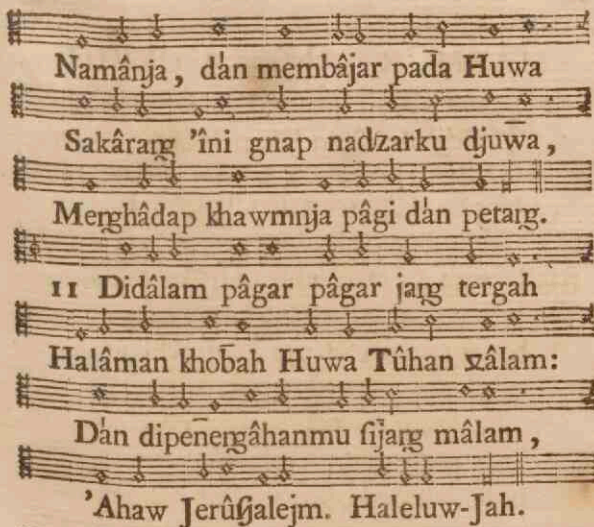 Namânja, dàn membâjar pad̄a Huwa
Sakârang 'îni gnap nadzarku djuw̄a,
Menghâdap khawmnja pâgi dàn petang.
11 Didâlam pâgar pâgar jang tergah
Halâman khob̄ah Huwa Tûhan xâlam:
Dàn dipen̄engâhanmu ſijang mâlam,
'Ahaw Jerûſjalejm. Haleluw-Jah.